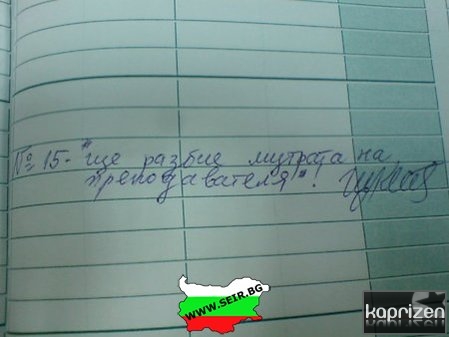 № 15 - "ще разбие мутрата на
преподавателя"!
WWW.SEIR.BG
kaprizen